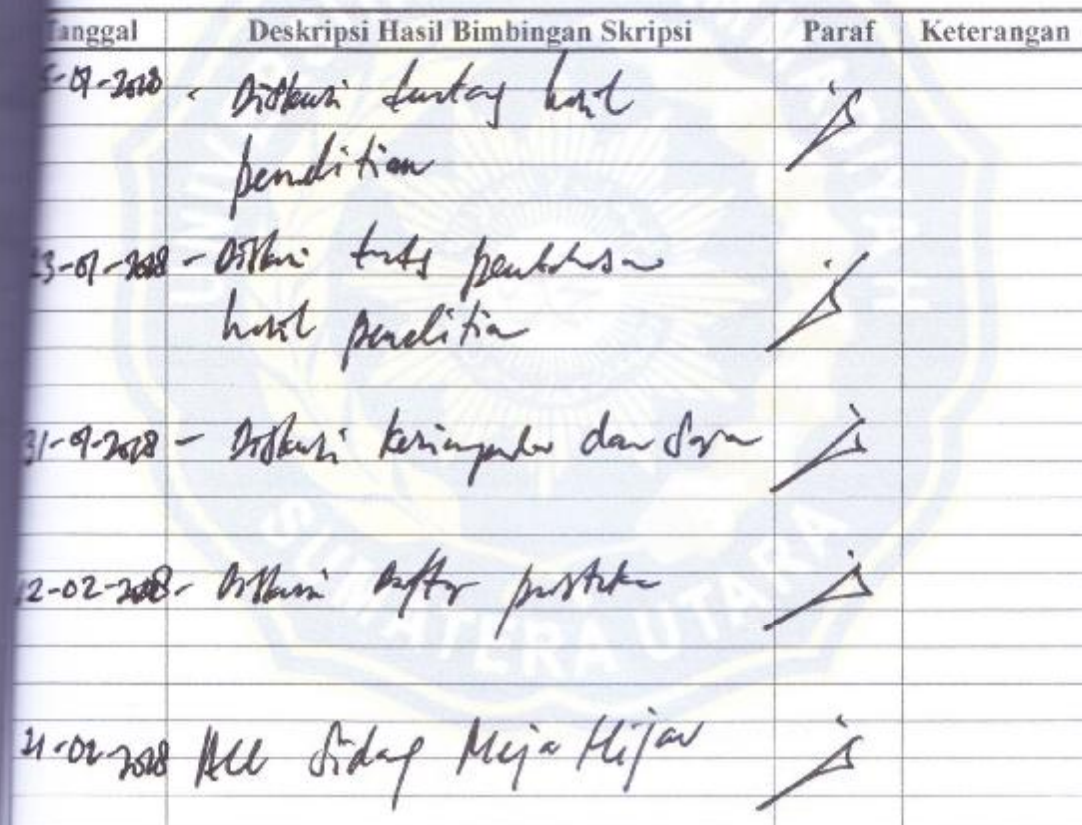 Tanggal Deskripsi Hasil Bimbingan Skripsi Paraf Keterangan
5-01-2018 - Diskusi tentang hasil
penelitian
23-01-2018 - Diskusi tentang pembahasan
hasil penelitian
31-01-2018 - Diskusi kesimpulan dan Saran
02-02-2018 - Diskusi Daftar pustaka
21-02-2018 Acc Sidang Meja Hijau
SUMATERA UTARA